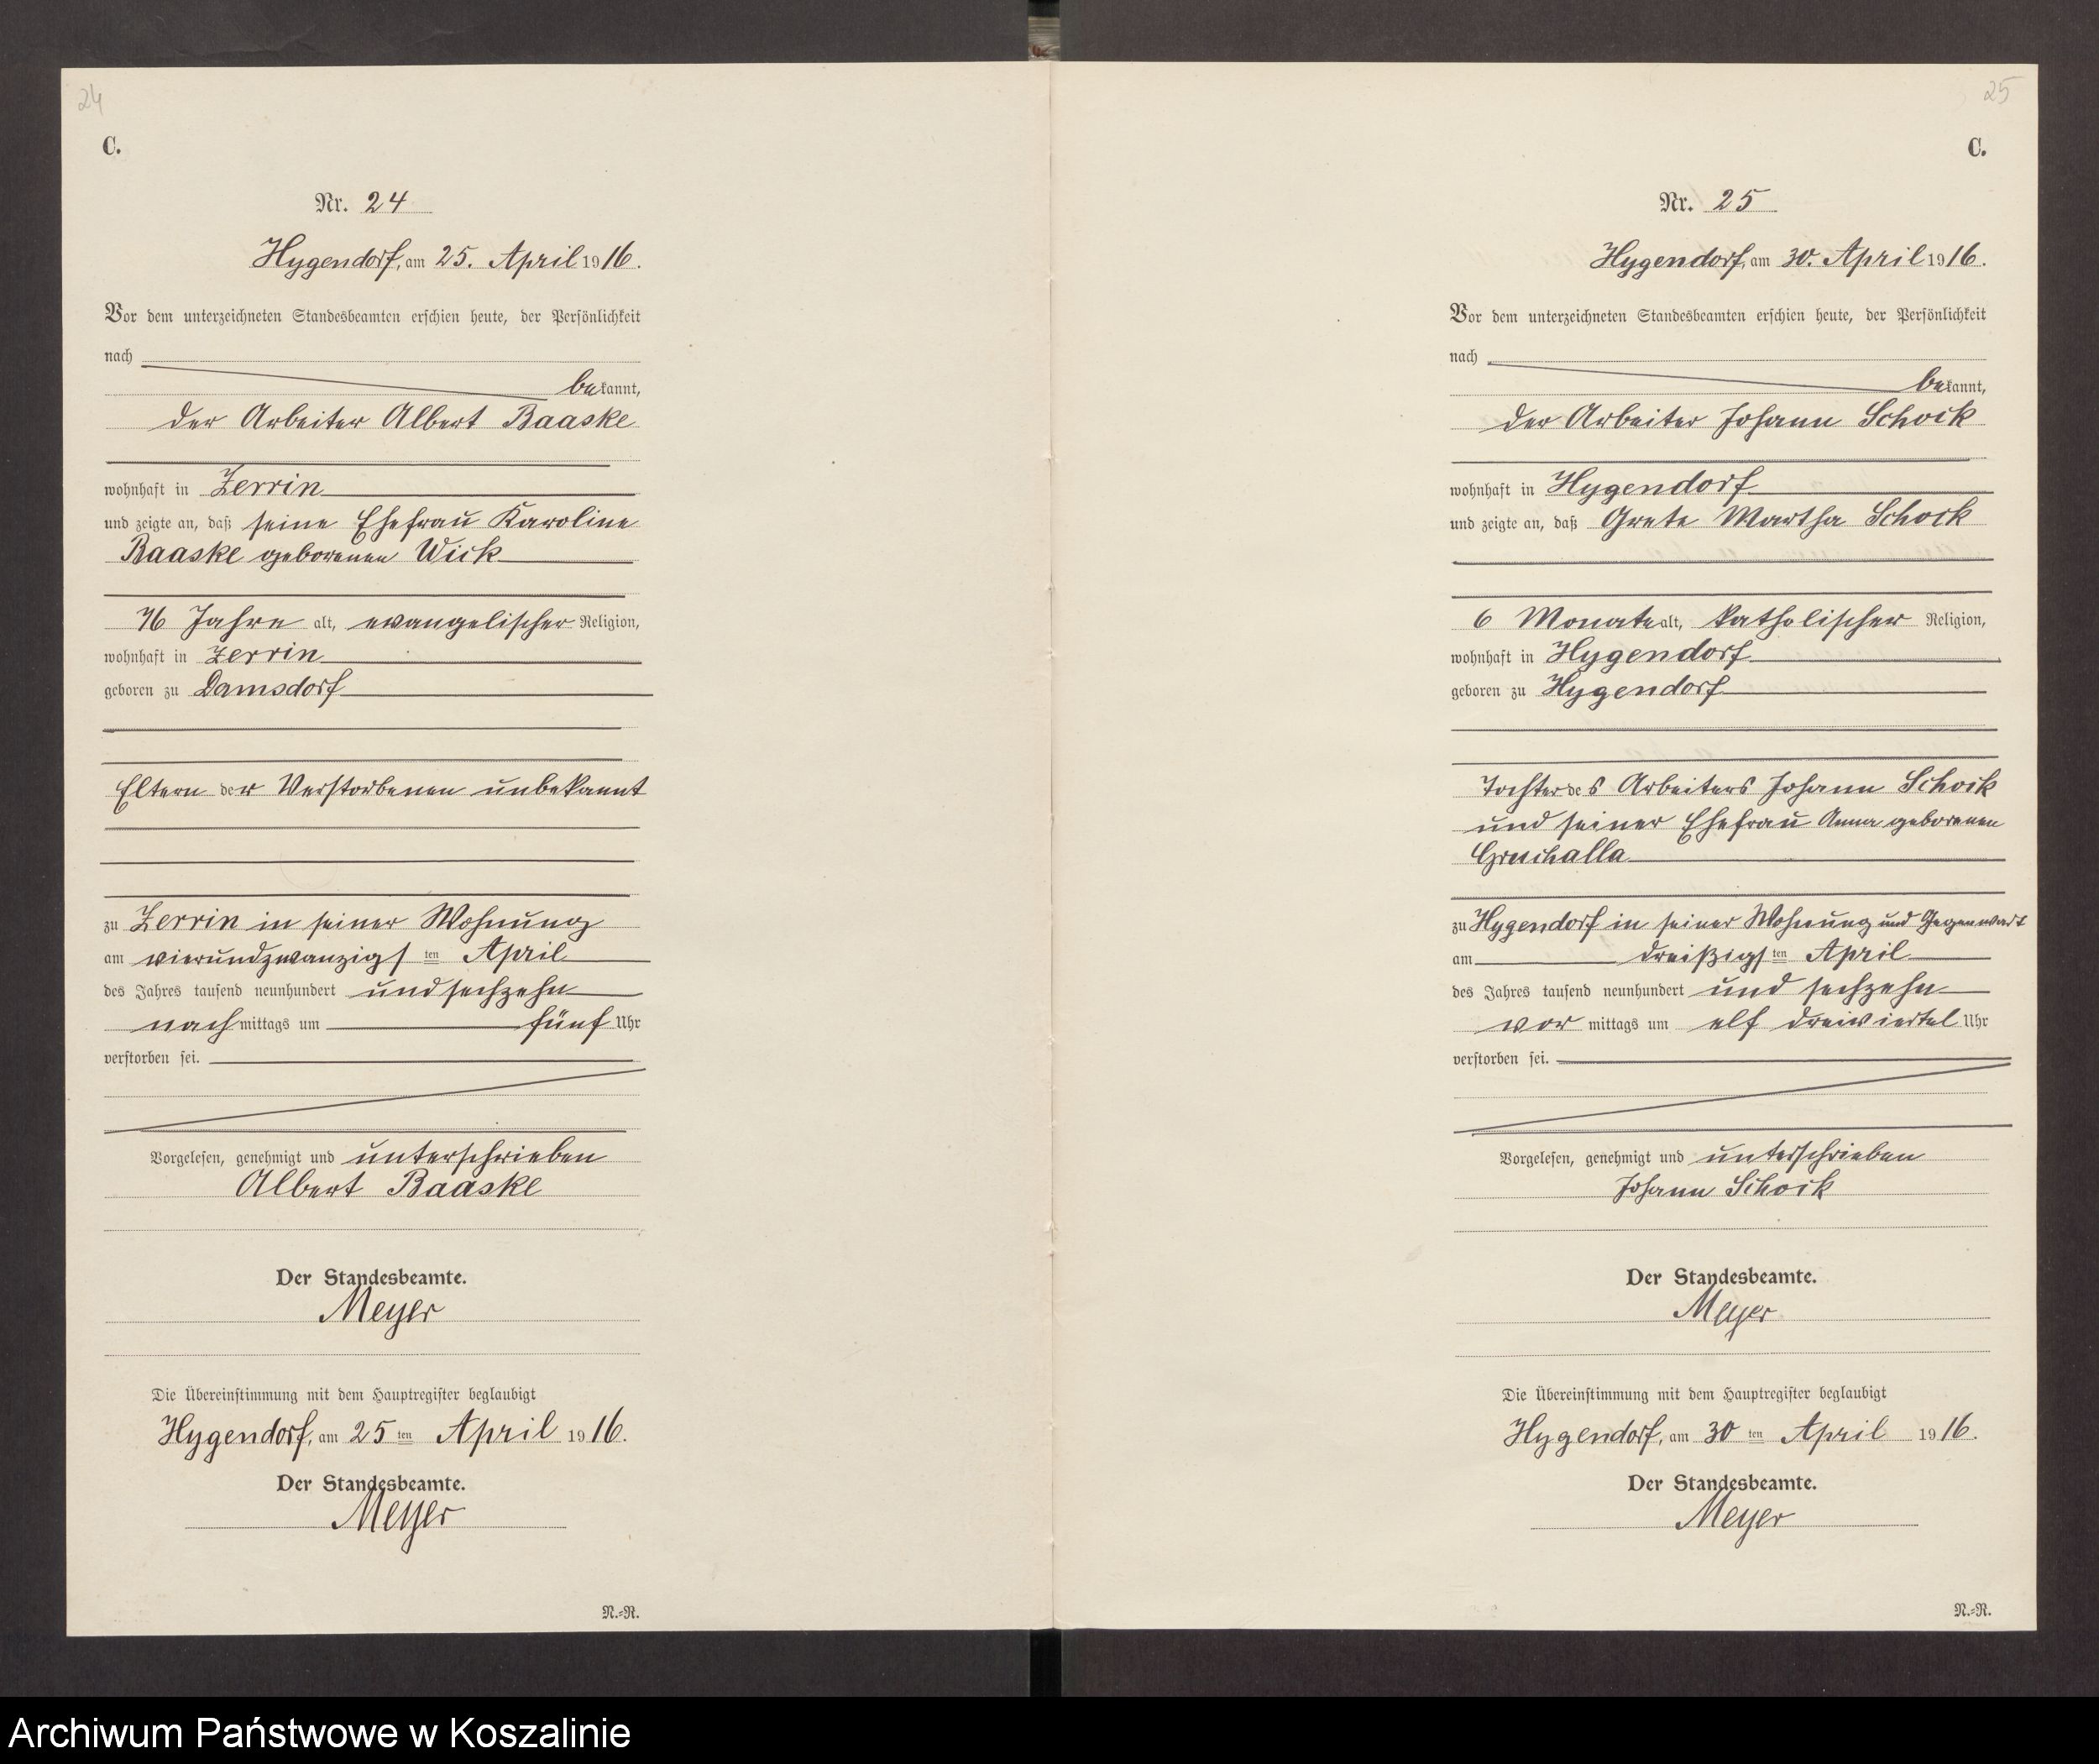 24
C.
Nr. 24
Hygendorf, am 25. April 1916.
Vor dem unterzeichneten Standesbeamten erschien heute, der Persönlichkeit
nach
bekannt,
der Arbeiter Albert Baaske
wohnhaft in Zerrin
und zeigte an, daß seine Ehefrau Karoline
Baaske geborenen Wick
76 Jahre alt, evangelischer Religion,
wohnhaft in Zerrin
geboren zu Damsdorf
Eltern der Verstorbenen unbekannt
zu Zerrin in seiner Wohnung
am vierundzwanzigsten April
des Jahres tausend neunhundert und sechzehn
nachmittags um fünf Uhr
verstorben sei.
Vorgelesen, genehmigt und unterschrieben
Albert Baaske
Der Standesbeamte.
Meyer
Die Übereinstimmung mit dem Hauptregister beglaubigt
Hygendorf, am 25ten April 1916.
Der Standesbeamte.
Meyer
N.=R.
25
C.
Nr. 25
Hygendorf, am 30. April 1916.
Vor dem unterzeichneten Standesbeamten erschien heute, der Persönlichkeit
nach
bekannt,
der Arbeiter Johann Schock
wohnhaft in Hygendorf
und zeigte an, daß Grete Martha Schock
6 Monate alt, katholischer Religion,
wohnhaft in Hygendorf
geboren zu Hygendorf
Tochter des Arbeiters Johann Schock
und seiner Ehefrau Anna geborenen
Gruchalla
zu Hygendorf in seiner Wohnung und Gegenwart
am dreißigsten April
des Jahres tausend neunhundert und sechzehn
vormittags um elf dreiviertel Uhr
verstorben sei.
Vorgelesen, genehmigt und unterschrieben
Johann Schock
Der Standesbeamte.
Meyer
Die Übereinstimmung mit dem Hauptregister beglaubigt
Hygendorf, am 30ten April 1916.
Der Standesbeamte.
Meyer
N.=R.
Archiwum Państwowe w Koszalinie